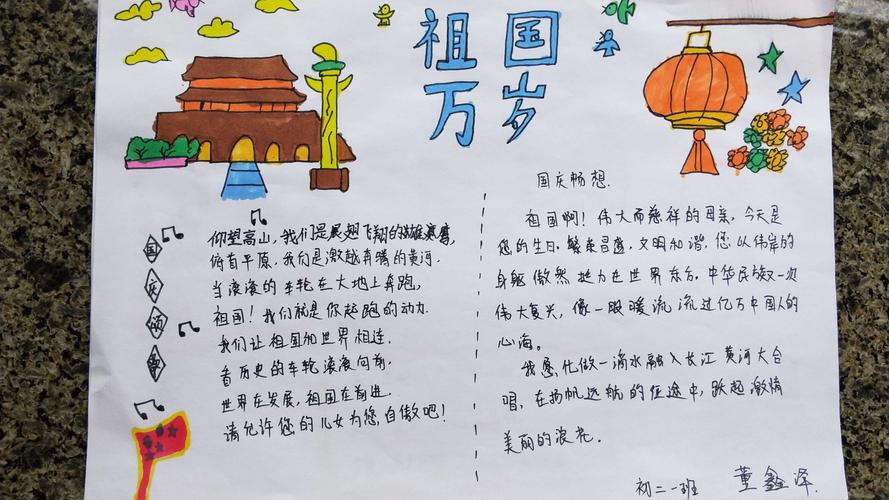 祖国
万岁
国庆颂歌
仰望高山，我们是展翅飞翔的雄鹰，
俯首平原，我们是激越奔腾的黄河。
当滚滚的车轮在大地上奔跑，
祖国！我们就是你起跑的动力.
我们让祖国和世界相连.
看历史的车轮滚滚向前.
世界在发展,祖国在前进.
请允许您的儿女为您,自傲吧！
国庆畅想.
祖国啊！伟大而慈祥的母亲，今天是
您的生日.繁荣昌盛，文明和谐.您以伟岸的
身躯傲然挺力在世界东方.中华民族又一次
伟大复兴，像一股暖流流过亿万中国人的
心海。
我愿化做一滴水融入长江黄河大合
唱，在扬帆远航的征途中,跃起激情
美丽的浪花.
初二一班 董鑫泽.